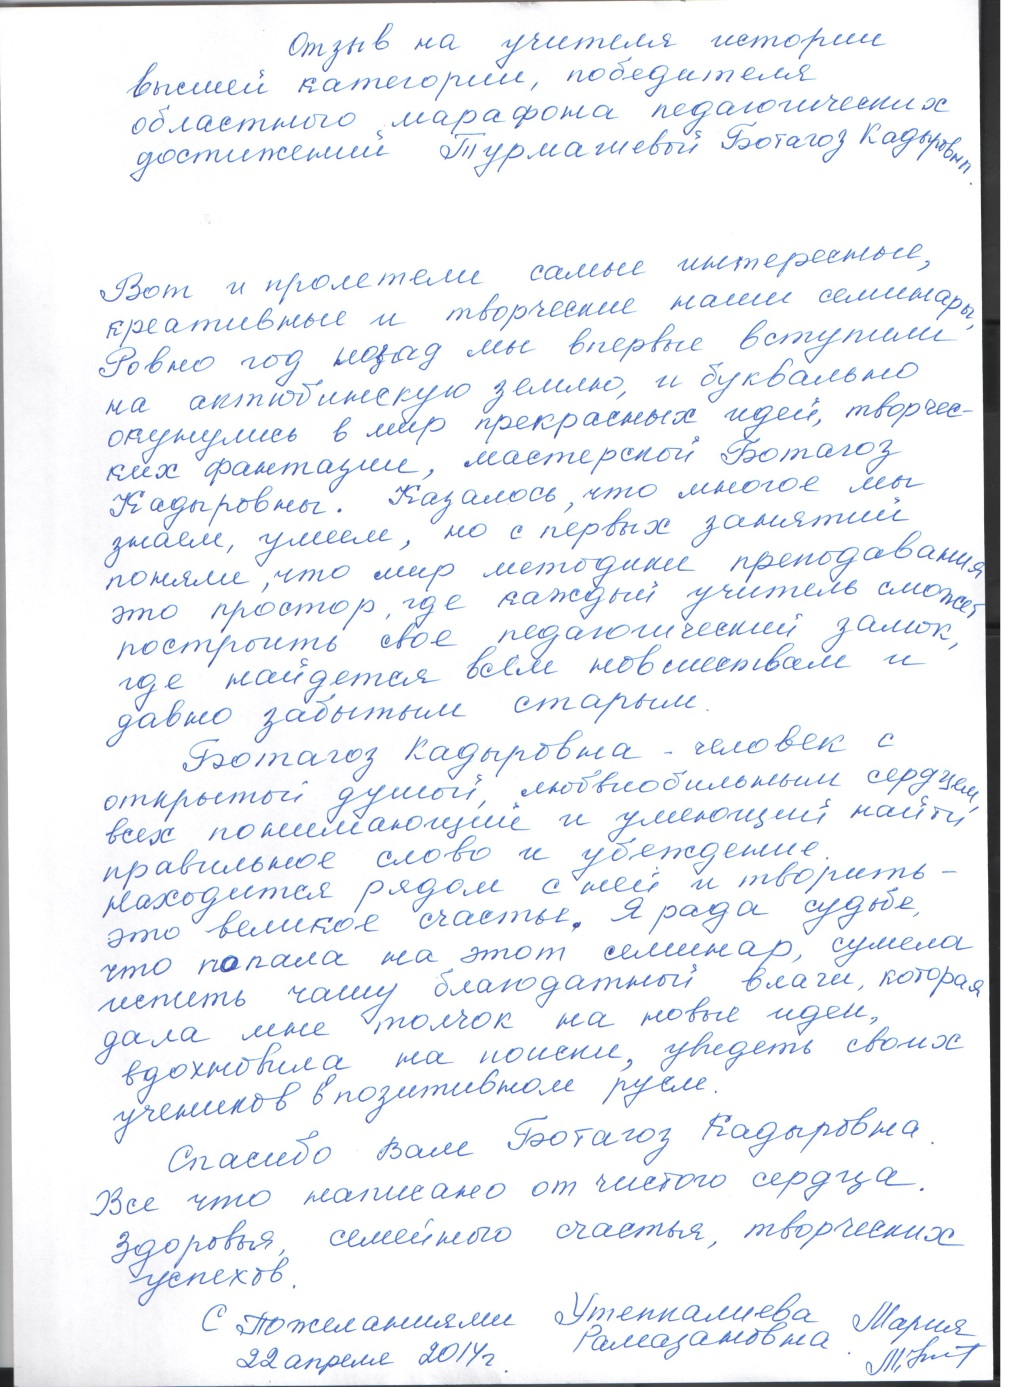 Отзыв на учителя истории
высшей категории, победителя
областного марафона педагогических
достижений Турмашевой Ботагоз Кадыровны.
Вот и пролетели самые интересные,
креативные и творческие наши семинары,
Ровно год назад мы впервые вступили
на актюбинскую землю, и буквально
окунулись в мир прекрасных идей, творчес-
ких фантазии, мастерской Ботагоз
Кадыровны. Казалось, что многое мы
знаем, умеем, но с первых занятий
поняли, что мир методики преподавания
это простор, где каждый учитель сможет
построить свое педагогический замок,
где найдется всем новшествам и
давно забытым старым.
Ботагоз Кадыровна - человек с
открытой душой, любвиобильным сердцем,
всех понимающий и умеющий найти
правильное слово и убеждение.
Находится рядом с ней и творить -
это великое счастье. Я рада судьбе,
что попала на этот семинар, сумела
испить чашу благодатной влаги, которая
дала мне толчок на новые идеи,
вдохновила на поиски, увидеть своих
учеников в позитивном русле.
Спасибо Вам Ботагоз Кадыровна.
Все что написано от чистого сердца.
Здоровья, семейного счастья, творческих
успехов.
С Пожеланиями Утепкалиева Мария
Рамазановна
22 апреля 2014г.